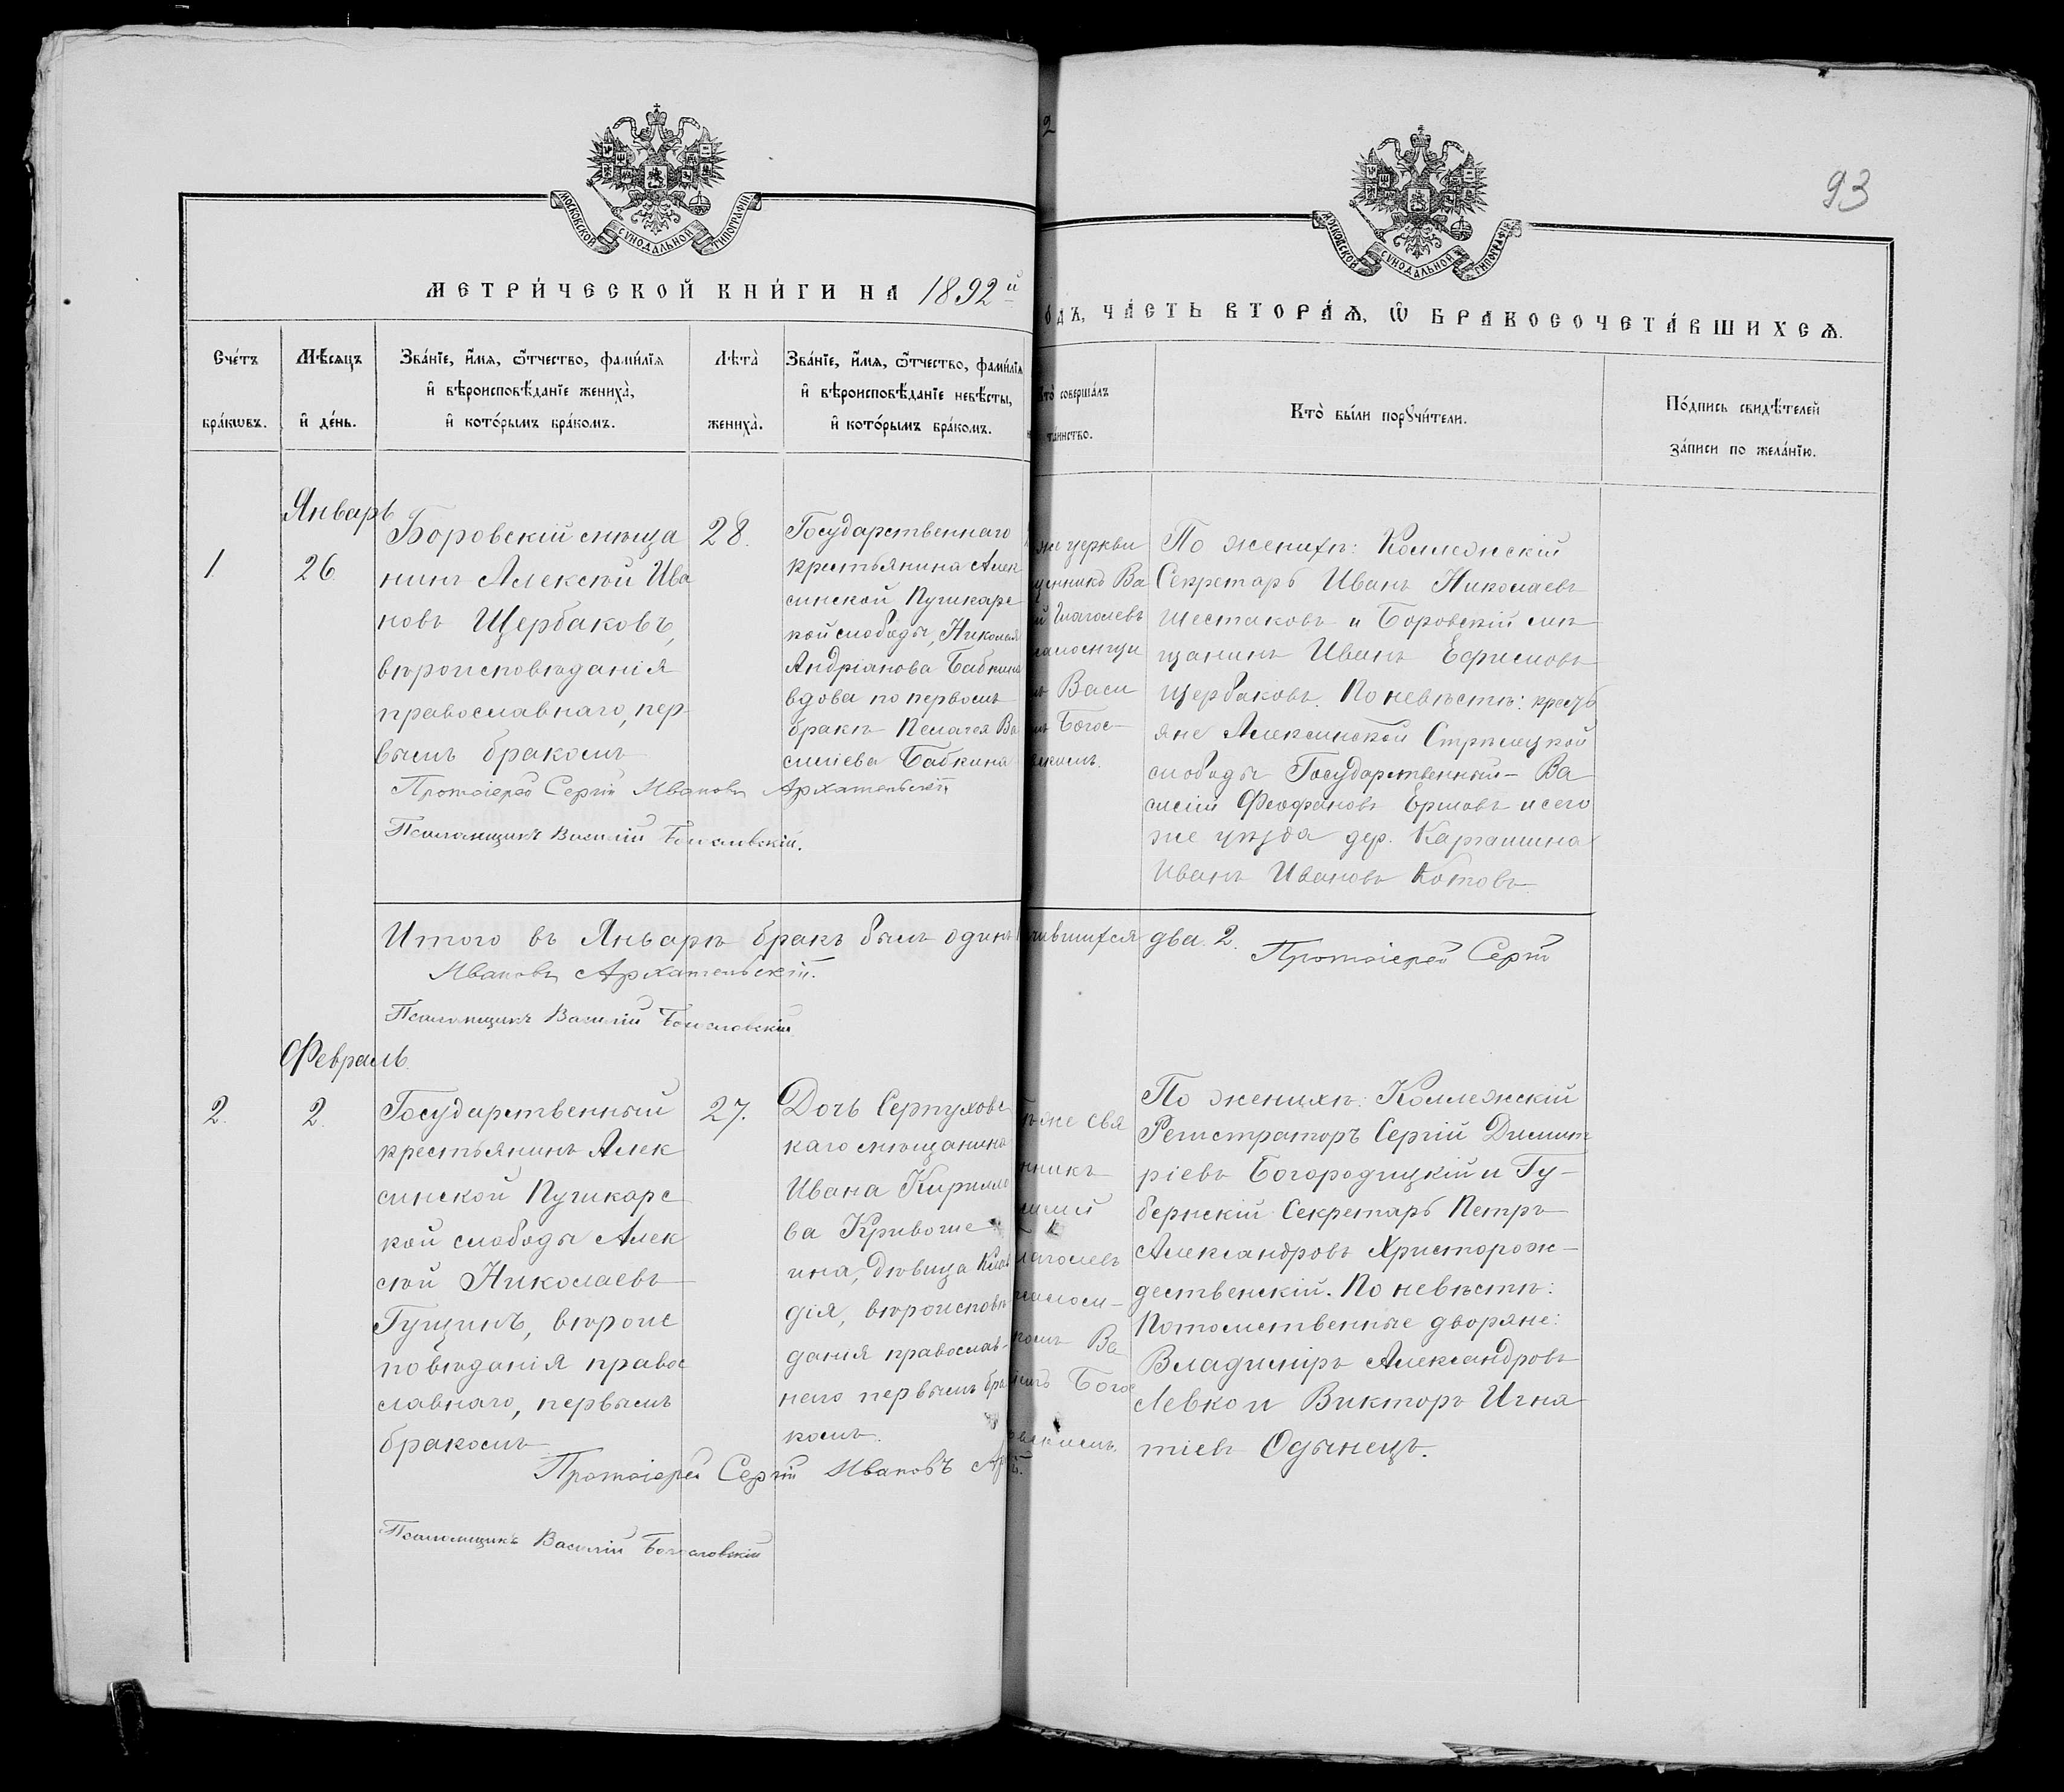 93
МОСКОВСКОЙ СУНОДАЛЬНОЙ ТИПОГРАФІИ
МОСКОВСКОЙ СУНОДАЛЬНОЙ ТИПОГРАФІИ
МЕТРИ́ЧЕСКОЙ КНИ́ГИ НА 1892й
ОДЪ, ЧА́СТЬ ВТОРА́Ѧ, Ѽ БРАКОСОЧЕТА́ВШИХСѦ.
Сче́тъ бра́кѡвъ.
Мѣ́сѧцъ и҆ де́нь.
Зва́нїе, и҆́мѧ, ѻ҆́тчество, фами́лїѧ
и҆ вѣроисповѣ́данїе жениха̀,
и҆ кото́рымъ бра́комъ.
Лѣта̀ жениха̀.
Зва́нїе, и҆́мѧ, ѻ҆́тчество, фами́лїѧ
и҆ вѣроисповѣ́данїе невѣ́сты,
и҆ кото́рымъ бра́комъ.
то̀ соверша́лъ
та́инство.
Кто̀ бы́ли порꙋчи́тели.
По́дпись свидѣ́телей
за́писи по жела́нїю.
Январь
1.
26.
Боровскій мѣща
нинъ Алексѣй Ива
новъ Щербаковъ,
вѣроисповѣданія
православнаго, пер
вымъ бракомъ
28.
Государственнаго
крестьянина Алек
синской Пушкарс
кой слободы, Николая
Андріанова Бабкина
вдова по первомъ
бракѣ Пелагея Ва
силіева Бабкина
же церкви
щенникъ Ва
й Глаголевъ
Васи
Богос-
По женихѣ: Коллежскій
Секретарь Иванъ Николаевъ
Шестаковъ и Боровскій мѣ
щанинъ Иванъ Ефимовъ
Щербаковъ. По невѣстѣ: кресть
яне Алексинской Стрѣлецкой
слободы Государственный- Ва
силій Феофановъ Ершовъ и сего
же уѣзда дер. Карташина
Иванъ Ивановъ Котовъ.
Протоіерей Сергій Ивановъ Архангельскій.
Псаломщикъ Василій Богословскій.
Итого въ Январѣ бракъ былъ одинъ
чившихся два. 2. Протоіерей Сергій
Ивановъ Архангельскій.
Псаломщикъ Василій Богословскій
Февраль.
2.
2.
Государственный
крестьянинъ Алек
синской Пушкарс
кой слободы Алек
сѣй Николаевъ
Гущинъ, вѣроис
повѣданія правос
лавнаго, первымъ
бракомъ
27.
Дочь Серпуховс
каго мѣщанина
Ивана Кирилло
ва Кривоше
ина, дѣвица Клав
дія, вѣроисповѣ
данія православ-
наго первымъ бра
комъ.
же Свя
нникъ
силій
лаголевъ
комъ Ва
Богос
По женихѣ: Коллежскій
Регистраторъ Сергій Димит
ріевъ Богородицкій и Гу-
бернскій Секретарь Петръ
Александровъ Христорож-
дественскій. По невѣстѣ:
Потомственные дворяне:
Владиміръ Александровъ
Левко и Викторъ Игна
тіевъ Одынецъ.
Протоіерей Сергій Ивановъ Ар
Псаломщикъ Василій Богословскій